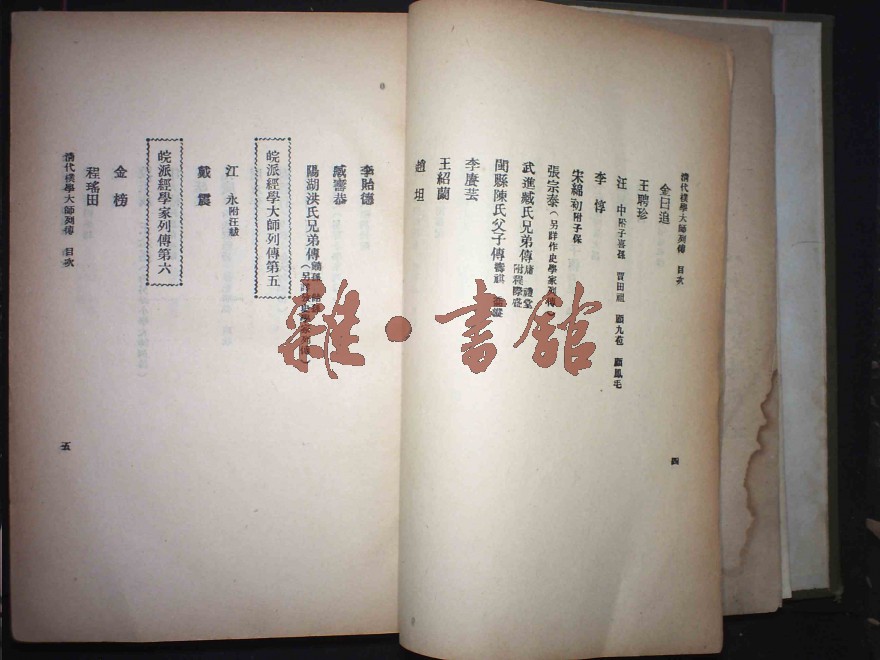 清代樸學大師列傳 目次
金曰追
王聘珍
汪 中附子喜孫 賈田祖 顧九苞 顧鳳毛
李 惇
朱綿初附子保
張宗泰(另詳作史學家列傳)
武進臧氏兄弟傳庸 禮堂 附程際盛
閩縣陳氏父子傳壽祺 喬樅
李賡芸
王紹蘭
趙 坦
四
李貽德
臧壽恭
陽湖洪氏兄弟傳(另詳作史學家列傳)
皖派經學大師列傳第五
江 永附汪紱
戴 震
皖派經學家列傳第六
金 榜
程瑤田
清代樸學大師列傳 目次
五
雜·書館